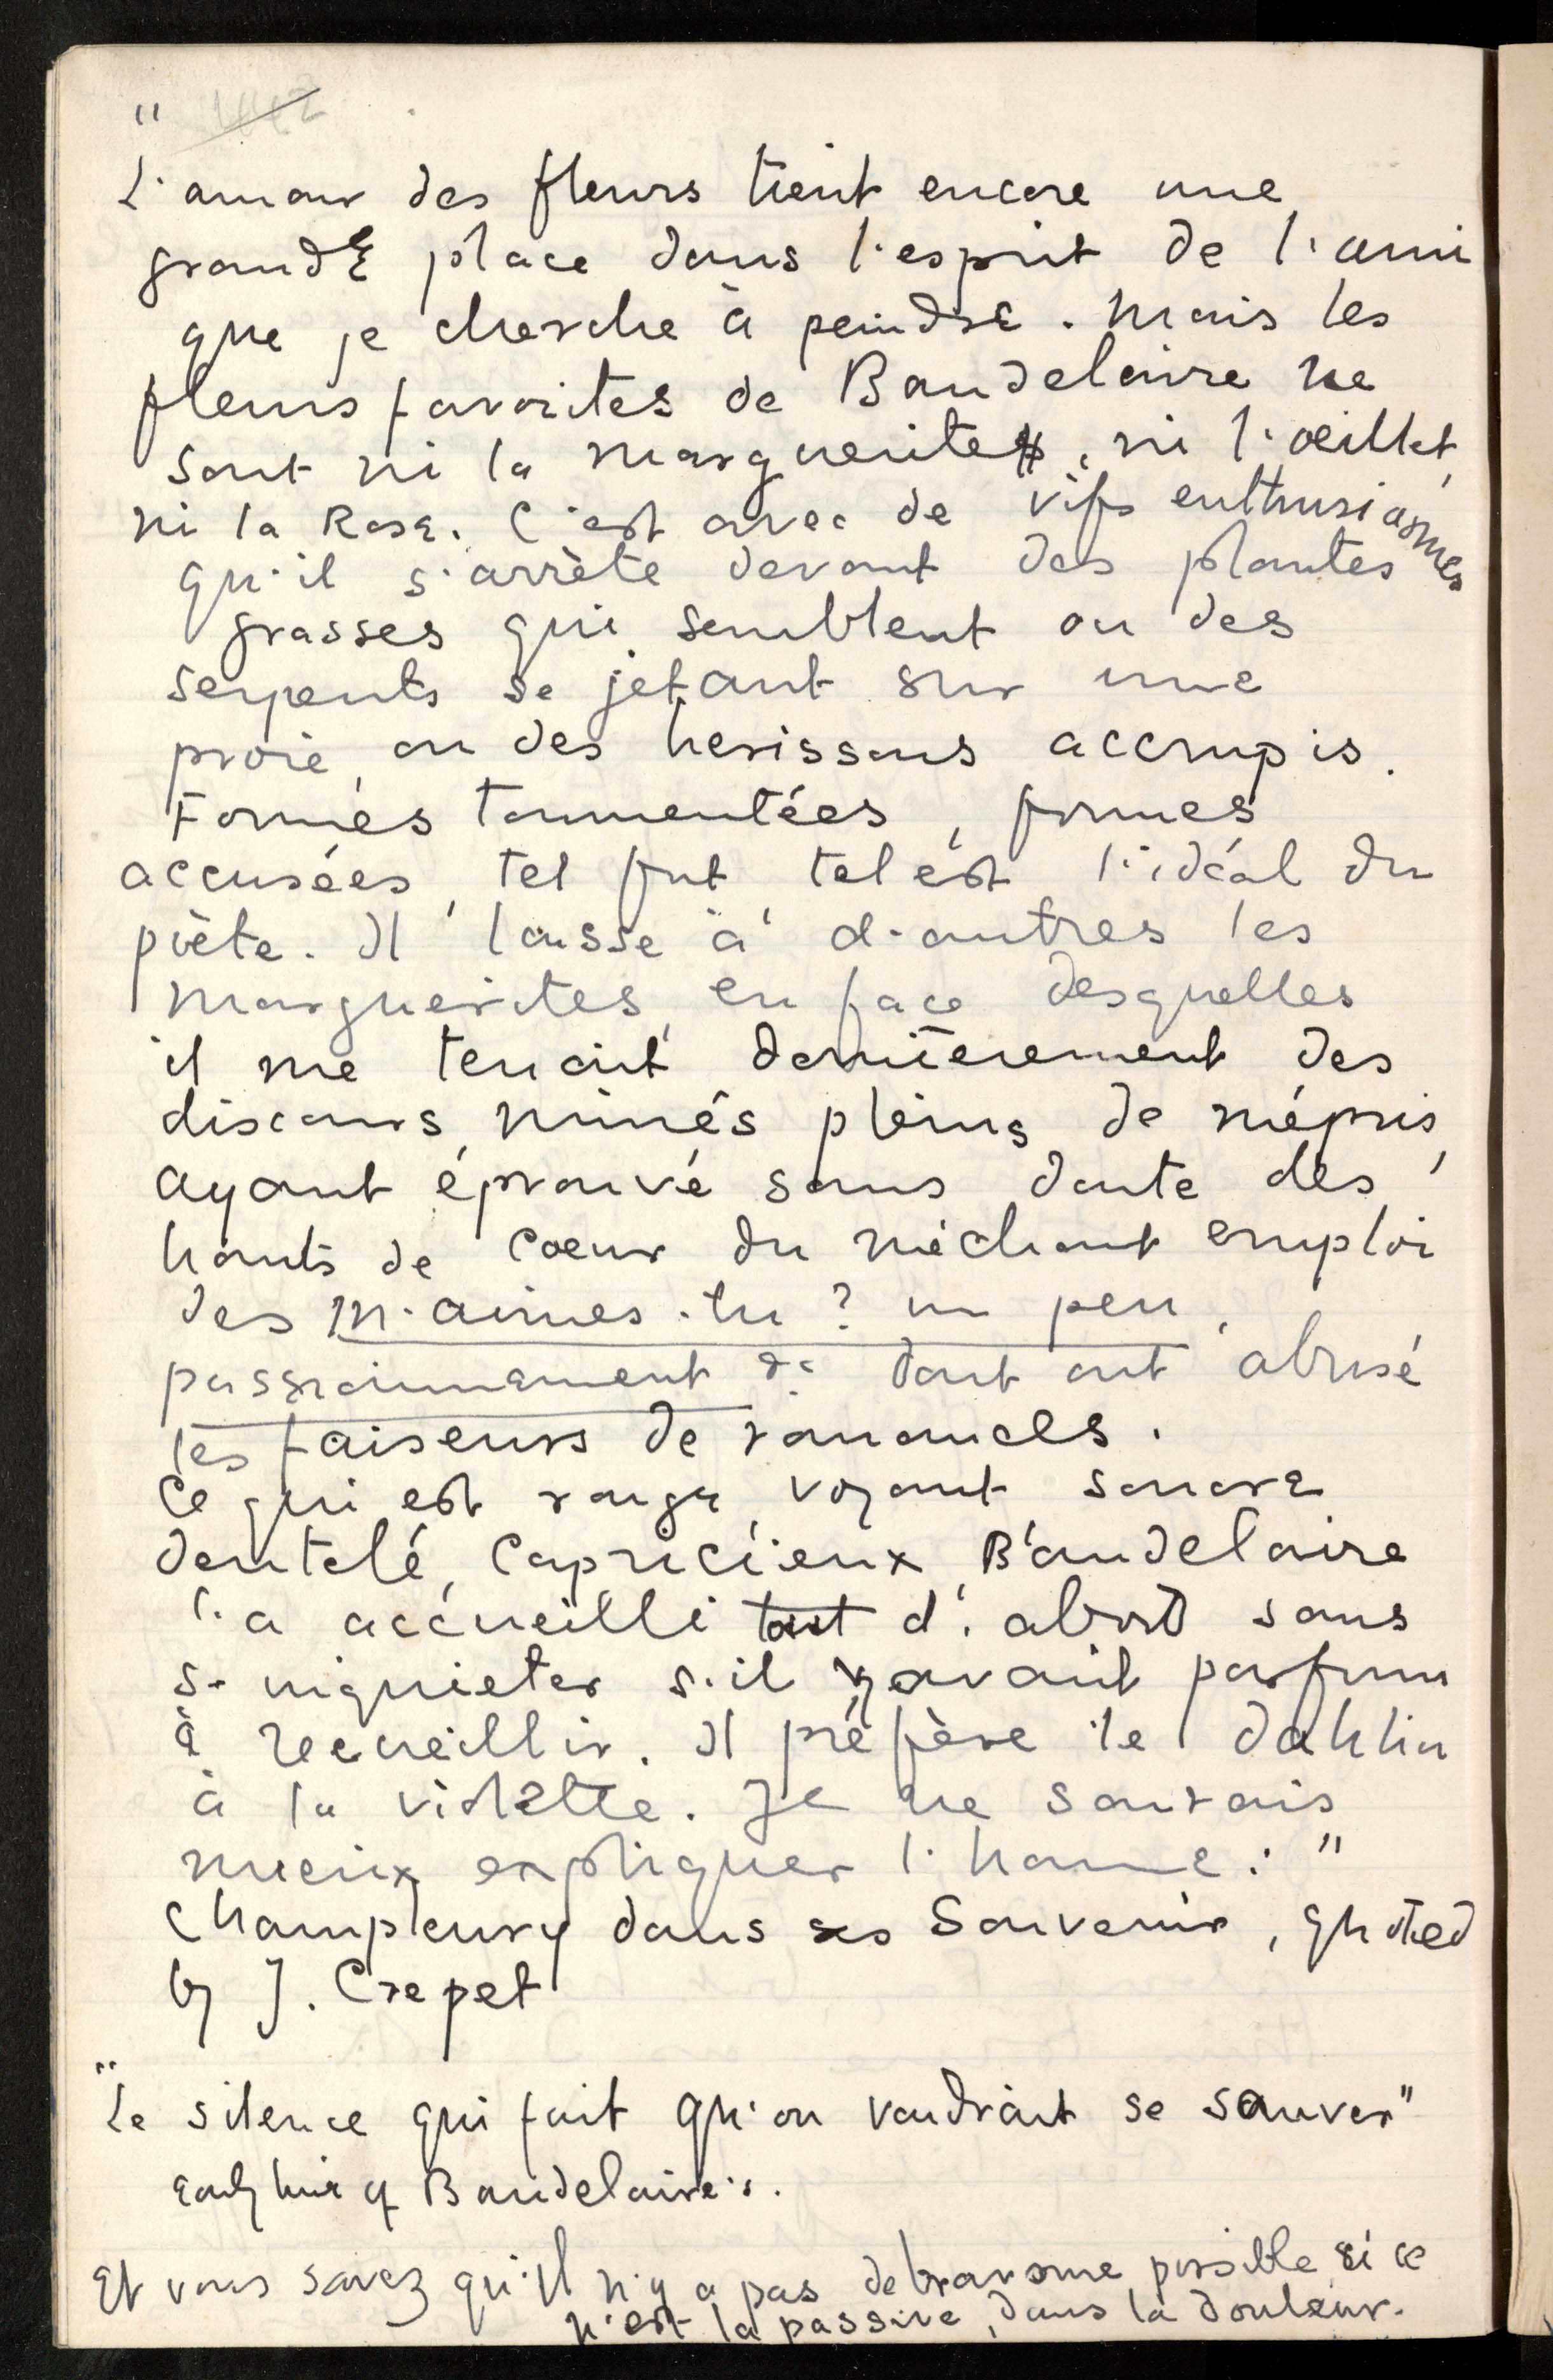 "
L'amour des fleurs tient encore une
grande place dans l'esprit de l'ami
que je cherche à peindre. Mais les
fleurs favorites de Baudelaire ne
sont ni la marguerite, ni l'oeillet,
ni la Rose. C'est avec de vifs enthusiasmes
qu'il s'arrète devant des plantes
grasses qui semblent ou des
serpents se jetant sur une
proie, ou des herissons accrupis.
Formes tourmentées, formes
accusées, tel fut, tel est l'idéal du
poète. Il laisse à d'autres les
marguerites, en face desquelles
il me tenait dernièrement des
discours mimés pleins de mépris,
ayant éprouvé sans doute des
hauts de coeur du méchant emploi
des m'aimes-tu? un peu,
passionnement &c dont ont abusé
les faiseurs de romances.
Ce qui est rouge, voyant sonore
dentelé, capricieux, Baudelaire
l'a accueilli tout d'abord sans
s'inquieter s'il y avait parfum
à recueillir. Il préfère le dahlia
à la violette. Je ne saurais
mieux expliquer l'homme."
Champfleury dans ses Souvenirs, quoted
by J. Crepet
"Le silence qui fait qu'on voudrait se sauver"
early line of Baudelaire's.
Et vous savez qu'il n'y a pas de bravoure possible, si ce
n'est la passive, dans la douleur.